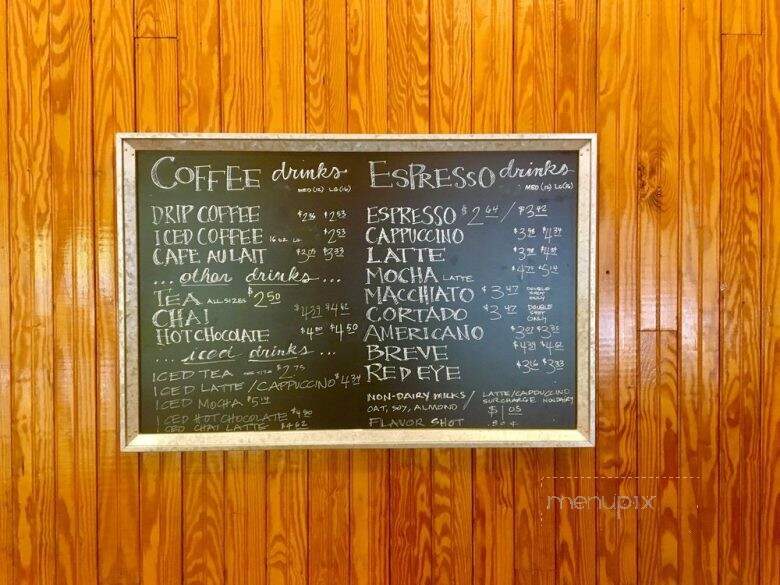 COFFEE drinks
MED (12) LG (16)
DRIP COFFEE $2.53
ICED COFFEE 16 oz $2.53
CAFE AU LAIT
... other drinks ...
TEA ALL SIZES $2.50
CHAI $4.62
HOT CHOCOLATE $4.50
... iced drinks ...
ICED TEA $2.75
ICED LATTE / CAPPUCCINO $4.34
ICED MOCHA $5.14
ICED HOT CHOCOLATE $4.80
ICED CHAI LATTE $4.62
ESPRESSO drinks
MED (12) LG (16)
ESPRESSO $2.64 / $3.42
CAPPUCCINO $4.34
LATTE
MOCHA LATTE $5.14
MACCHIATO $3.47 DOUBLE SHOT ONLY
CORTADO $3.47 DOUBLE SHOT ONLY
AMERICANO
BREVE $4.62
RED EYE $3.16 $3.33
NON-DAIRY MILKS / LATTE/CAPPUCCINO
OAT, SOY, ALMOND SURCHARGE NONDAIRY
$1.05
FLAVOR SHOT .50¢
menupix